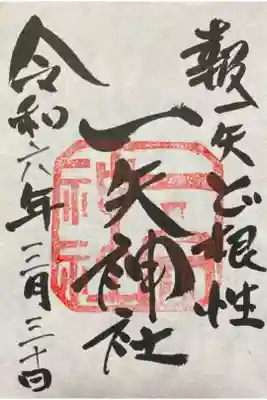 報一矢ど根性
一矢神社
令和六年三月三十日